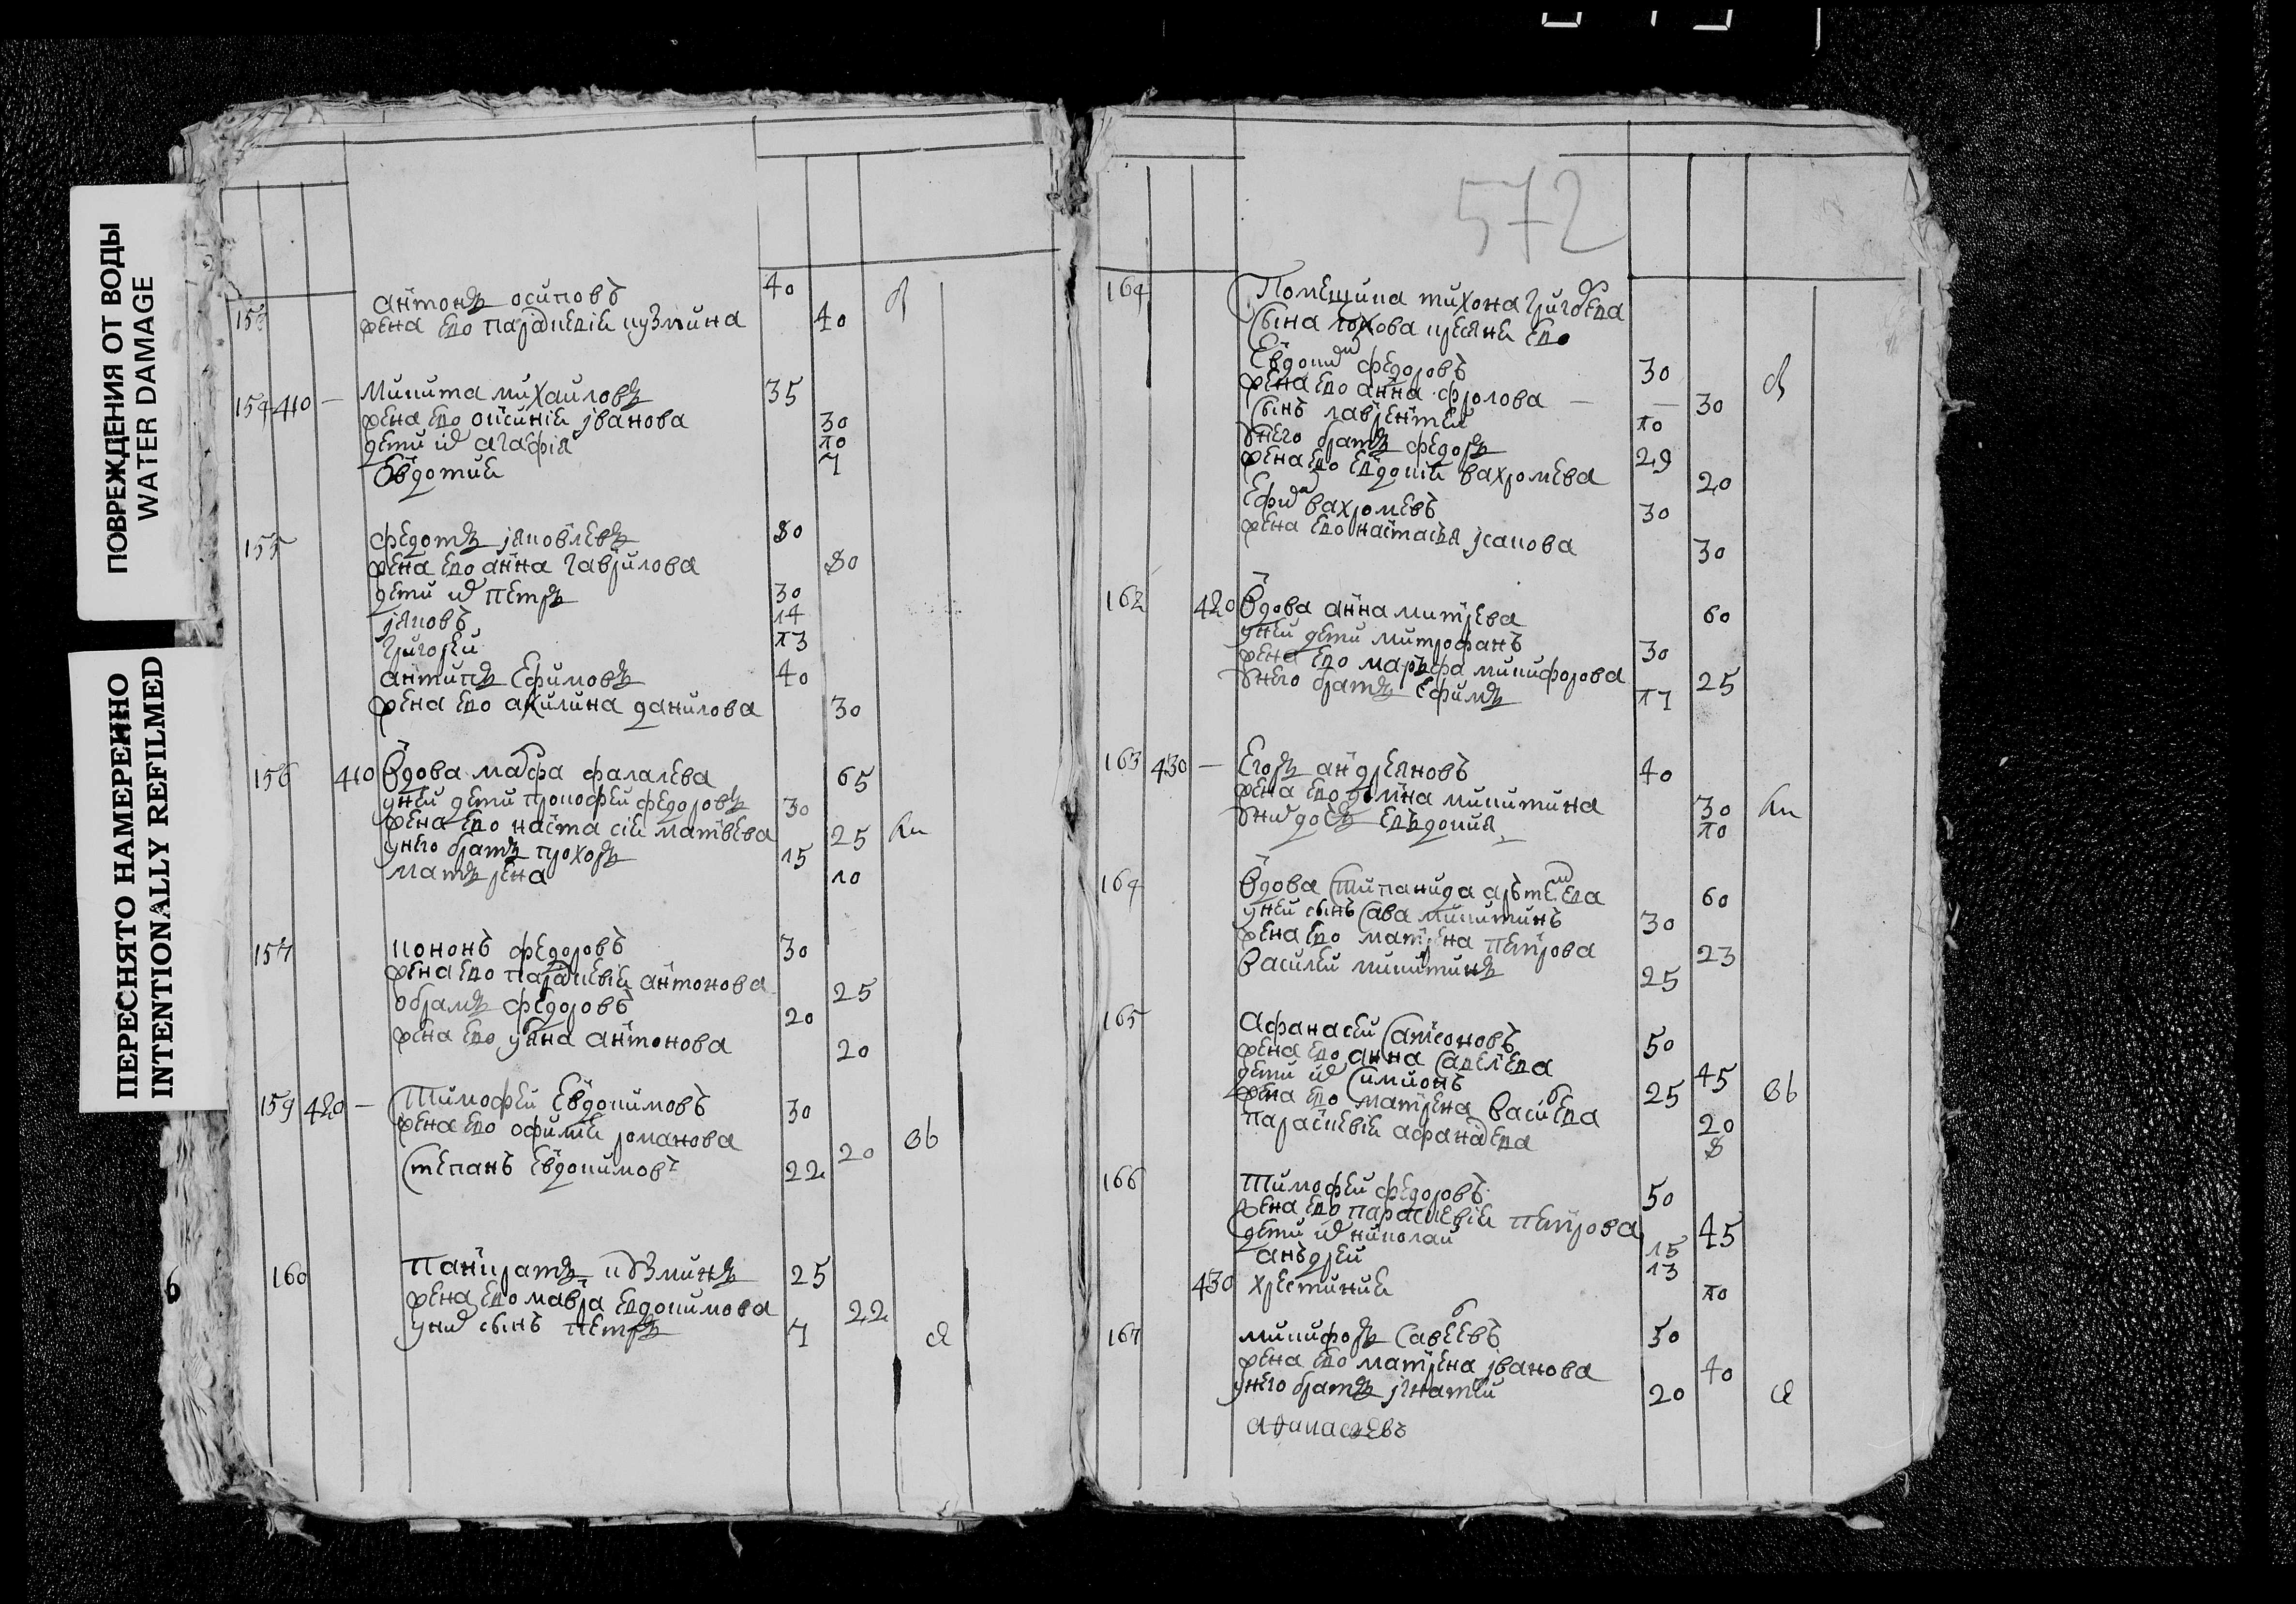 ПОВРЕЖДЕНИЯ ОТ ВОДЫ
WATER DAMAGE
ПЕРЕСНЯТО НАМЕРЕННО
INTENTIONALLY REFILMED
антонъ осиповъ 40
жена ево параскевiя кузмина 40
154 410 — Микита михаиловъ 35
жена ево оксинiя iванова 30
дети их агафiя 10
Евдотия 7
155 федотъ яковлевъ 80
жена ево анна гаврилова 80
дети их петръ 30
яковъ 14
григореи 13
антипъ Ефимовъ 40
жена ево акилина данилова 30
156 410 Вдова марфа фалалева 65
унеи дети прокофеи федоровъ 30
жена ево настасiя матвеева 25
унего братъ прохоръ 15
матърена 10
157 кононъ федоровъ 30
жена ево параскевiя антонова 25
абрамъ федоровъ 20
жена ево уляна антонова 20
159 420 — Тимофеи Евдокимовъ 30
жена ево офимия романова 20
Степанъ Евдокимовъ 22
160 Панкратъ кузминъ 25
жена ево мавра евдокимова 22
уних сынъ петръ 7
572
Помещика тихона григорева
Сына кресяне ево
Евдоким федоровъ 30
жена ево анна фролова — 30
Сынъ лаврентеи 10
унего братъ федоръ 29
жена ево евдокия вахромева 20
Ефим вахромевъ 30
жена ево настася iсакова 30
162 420 Вдова анна митрева 60
унеи дети митрофанъ 30
жена ево маръфа микифорова 25
унего братъ Ефимъ 17
163 430 — Егоръ андреяновъ 40
жена ево домна микитина 30
уних дочь евъдокия 10
164 Вдова Стипанида арътемева 60
унеи сынъ Сава микитинъ 30
жена ево матрена петрова 23
Василеи микитинъ 25
165 Афанасеи Самсоновъ 50
жена ево анна Савелева 45
дети их Симионъ 25
жена ево матрена васильева 20
параскевiя афанасева 8
166 Тимофеи федоровъ 50
жена ево параскевiя петрова 45
дети их николаи 15
анъдреи 13
430 хрестиния 10
167 микифоръ Савелевъ 50
жена ево матрена iванова 40
унего братъ iгнатеи 20